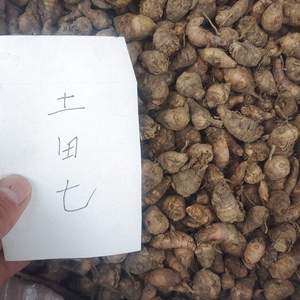 土
田
七